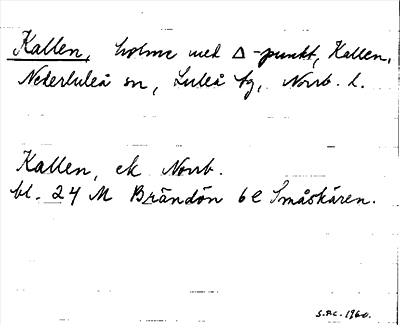 Kallen, holme med Δ-punkt, Kallen,
Nederluleå sn, Luleå tg, Norrb. l.
Kallen, ek Norrb.
bl. 24 M Brändön 6e Småskären.
1960.